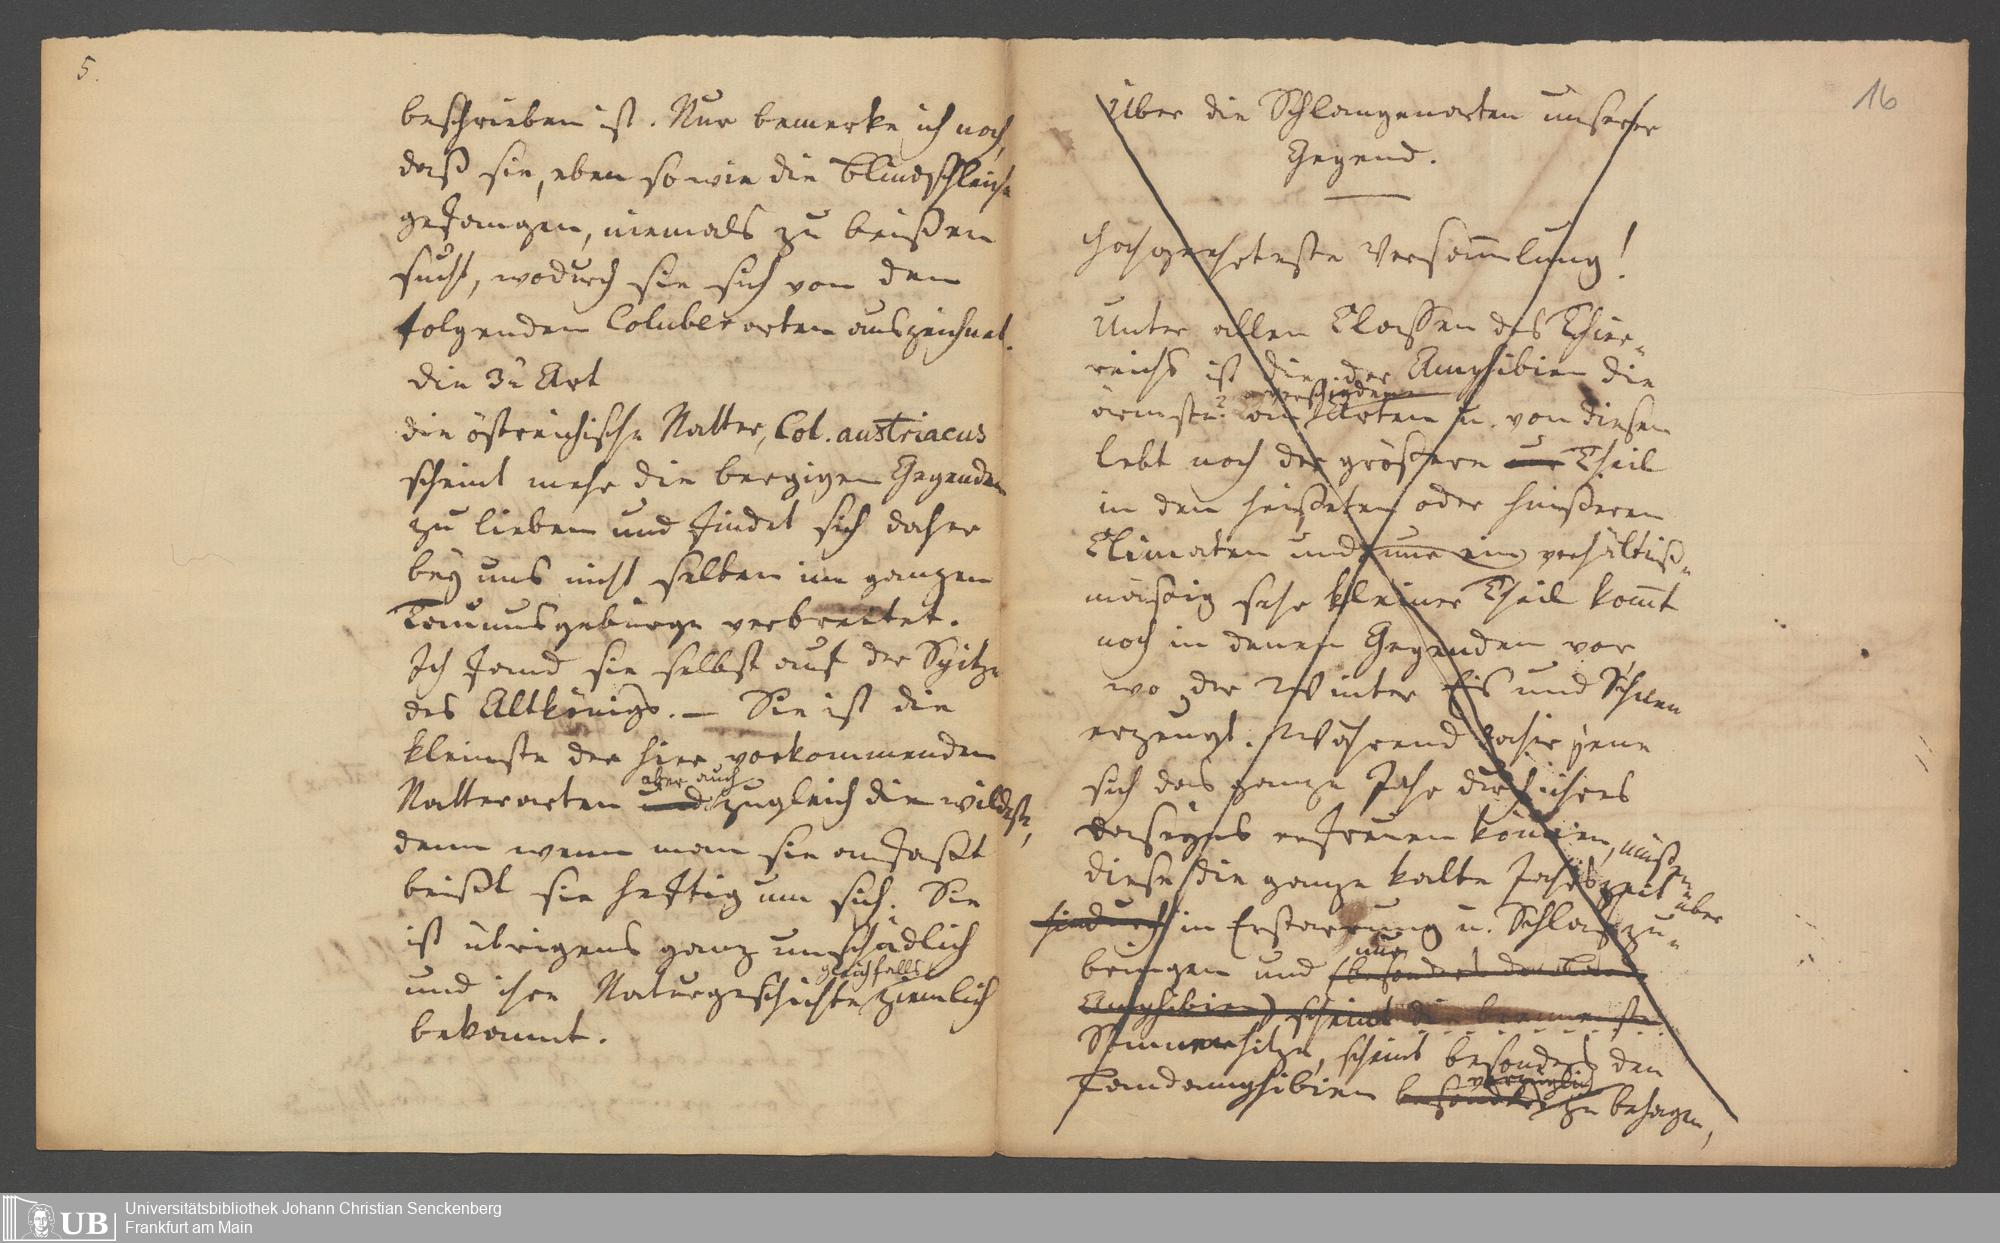 5.
beschrieben ist. Nur bemerke ich noch,
daß sie, eben so wie die Blindschleiche
gefangen, niemals zu beißen
sucht, wodurch sie sich von den
folgenden Coluber arten auszeichnet.
die 3e Art
die östreichische Natter, Col. austriacus
scheint mehr die bergigen Gegenden
zu lieben und findet sich daher
bey uns nicht selten im ganzen
Taunusgebürge verbreitet.
Ich fand sie selbst auf der Spitze
des Altkönigs. – Sie ist die
kleinste der hier vorkommenden
aber auch
Natterarten und zugleich die wildeste,
denn wenn man sie anfaßt
beißt sie heftig um sich. Sie
ist übrigens ganz unschädlich
gleichfalls
und ihre Naturgeschichte ziemlich
bekannt.
16
Über die Schlangenarten unserer
Gegend.
Hochgeehrteste Versam̄lung!
Unter allen Classen des Thier-
reichs ist die der Amphibien die
verschiedenen
ärmste an Arten u. von diesen
lebt noch der größere Theil
in den heißesten oder heißeren
Climaten und nur ein verhältniß-
mäßig sehr kleiner Theil kom̄t
noch in denen Gegenden vor,
wo der Winter Eis und Schnee
erzeugt. Während daher jene
sich das ganze Jahr durch ihres
Daseyns erfreuen können, müssen
diese die ganze kalte Jahrszeit über
hindurch in Erstarrung u. Schlaf zu-
nur
bringen und (besonders den Land
Amphibien) scheint die brennenste
Sommerhitze, scheint besonders den
vorzüglich
Landamphibien besonders zu behagen,
Universitätsbibliothek Johann Christian Senckenberg
UB
Frankfurt am Main